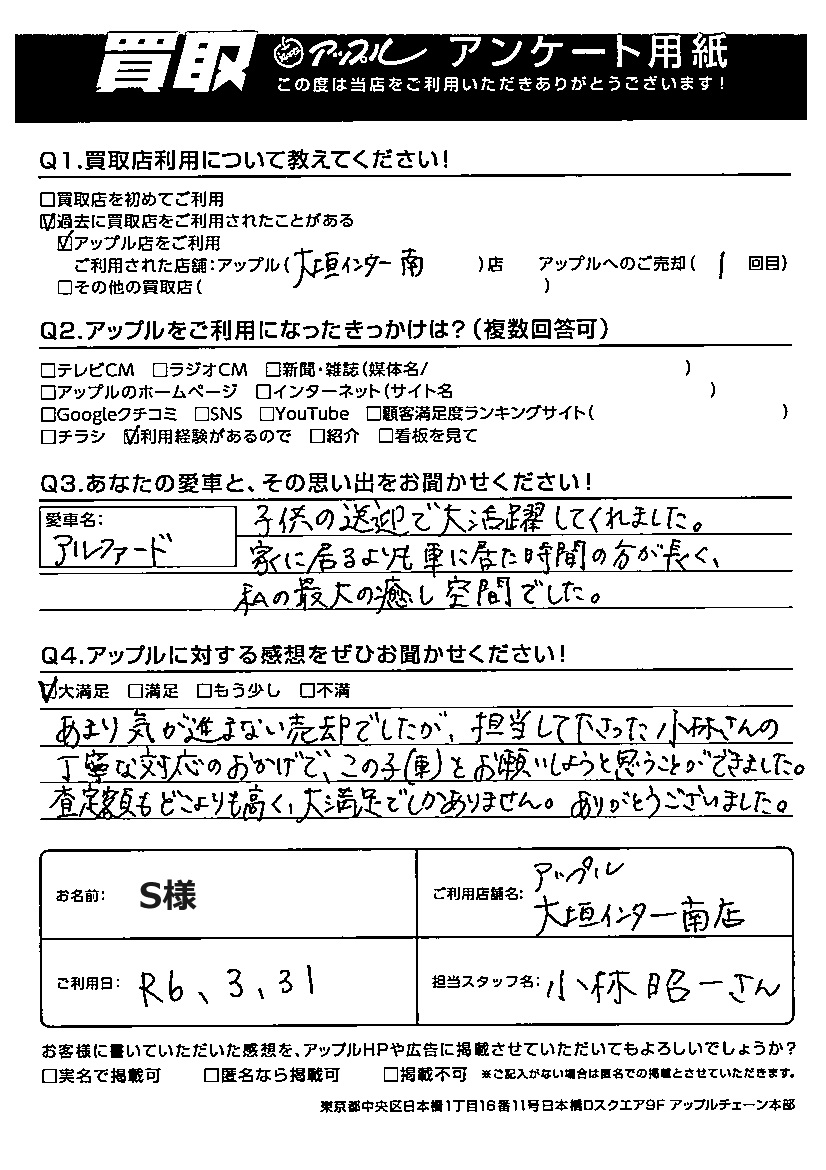 買取 アップル アンケート用紙
この度は当店をご利用いただきありがとうございます!
Q1.買取店利用について教えてください!
□買取店を初めてご利用
☑過去に買取店をご利用されたことがある
☑アップル店をご利用
ご利用された店舗:アップル(大垣インター南)店 アップルへのご売却(1回目)
□その他の買取店( )
Q2.アップルをご利用になったきっかけは?(複数回答可)
□テレビCM □ラジオCM □新聞・雑誌(媒体名/ )
□アップルのホームページ □インターネット(サイト名 )
□Googleクチコミ □SNS □YouTube □顧客満足度ランキングサイト( )
□チラシ ☑利用経験があるので □紹介 □看板を見て
Q3.あなたの愛車と、その思い出をお聞かせください!
愛車名:
アルファード
子供の送迎で大活躍してくれました。
家に居るよりも車に居た時間の方が長く、
私の最大の癒し空間でした。
Q4.アップルに対する感想をぜひお聞かせください!
☑大満足 □満足 □もう少し □不満
あまり気が進まない売却でしたが、担当して下さった小林さんの
丁寧な対応のおかげで、この子(車)をお願いしようと思うことができました。
査定額もどこよりも高く、大満足でしかありません。ありがとうございました。
お名前: S様
ご利用店舗名: アップル
大垣インター南店
ご利用日: R6、3、31
担当スタッフ名: 小林昭一さん
お客様に書いていただいた感想を、アップルHPや広告に掲載させていただいてもよろしいでしょうか?
□実名で掲載可 □匿名なら掲載可 □掲載不可 ※ご記入がない場合は匿名での掲載とさせていただきます。
東京都中央区日本橋1丁目16番11号日本橋Dスクエア9F アップルチェーン本部